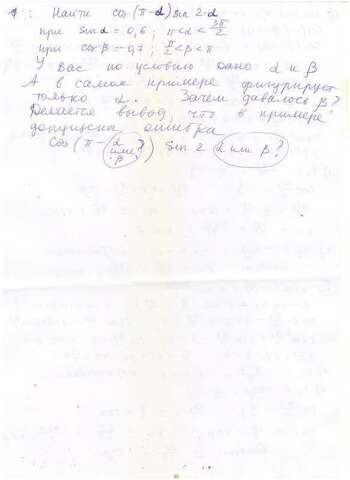 1: Найти cos(π-α) sin 2·α
при sinα = 0,6; π<α<3π/2
при cosβ = -0,7; π/2<β<π
У Вас по условию дано α и β
А в самом примере фигурирует
только α. Зачем давалось β?
Делается вывод, что в примере
допущена ошибка
cos(π-(α или β?)) sin 2 (α или β?)